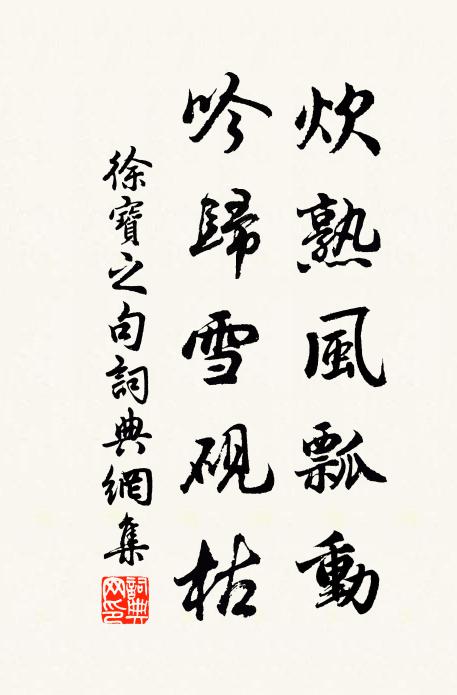 炊熟風瓢動
吟歸雪硯枯
徐寶之句詞典網集
詞典
网印